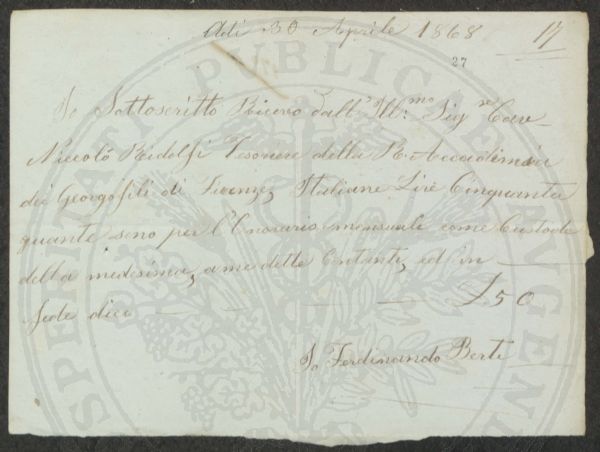 Adi 30 Aprile 1868 17
27
Io Sottoscritto Ricevo dall' Ill:mo Sigre Cav
Niccolò Ridolfi Tesoriere della R. Accademia
dei Georgofili di Firenze, Italiane Lire Cinquanta
quante sono per l'Onorario mensuale come Custode
della medesima, a me dette Contanti, ed in
fede dico £50
Io Ferdinando Berti
SPERITATI PUBLICAE AUGENDAE